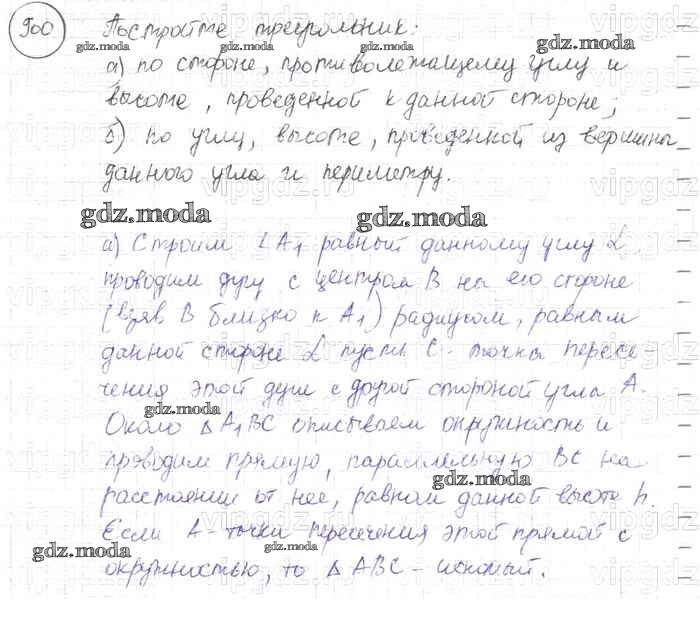 900 Постройте треугольник:
а) по стороне, противолежащему углу и
высоте, проведенной к данной стороне;
б) по углу, высоте, проведенной из вершины
данного угла и периметру.
gdz.moda
gdz.moda
а) Строим ∠A₁ равный данному углу α.
проводим дугу с центром B на его стороне
(взяв B близко к A₁) радиусом, равным
данной стороне α пусть C - точка пересе-
чения этой дуги с другой стороной угла A.
Около △A₁BC описываем окружность и
проводим прямую, параллельную BC на
расстоянии от нее, равном данной высоте h.
Если A - точки пересечения этой прямой с
окружностью, то △ABC - искомый.